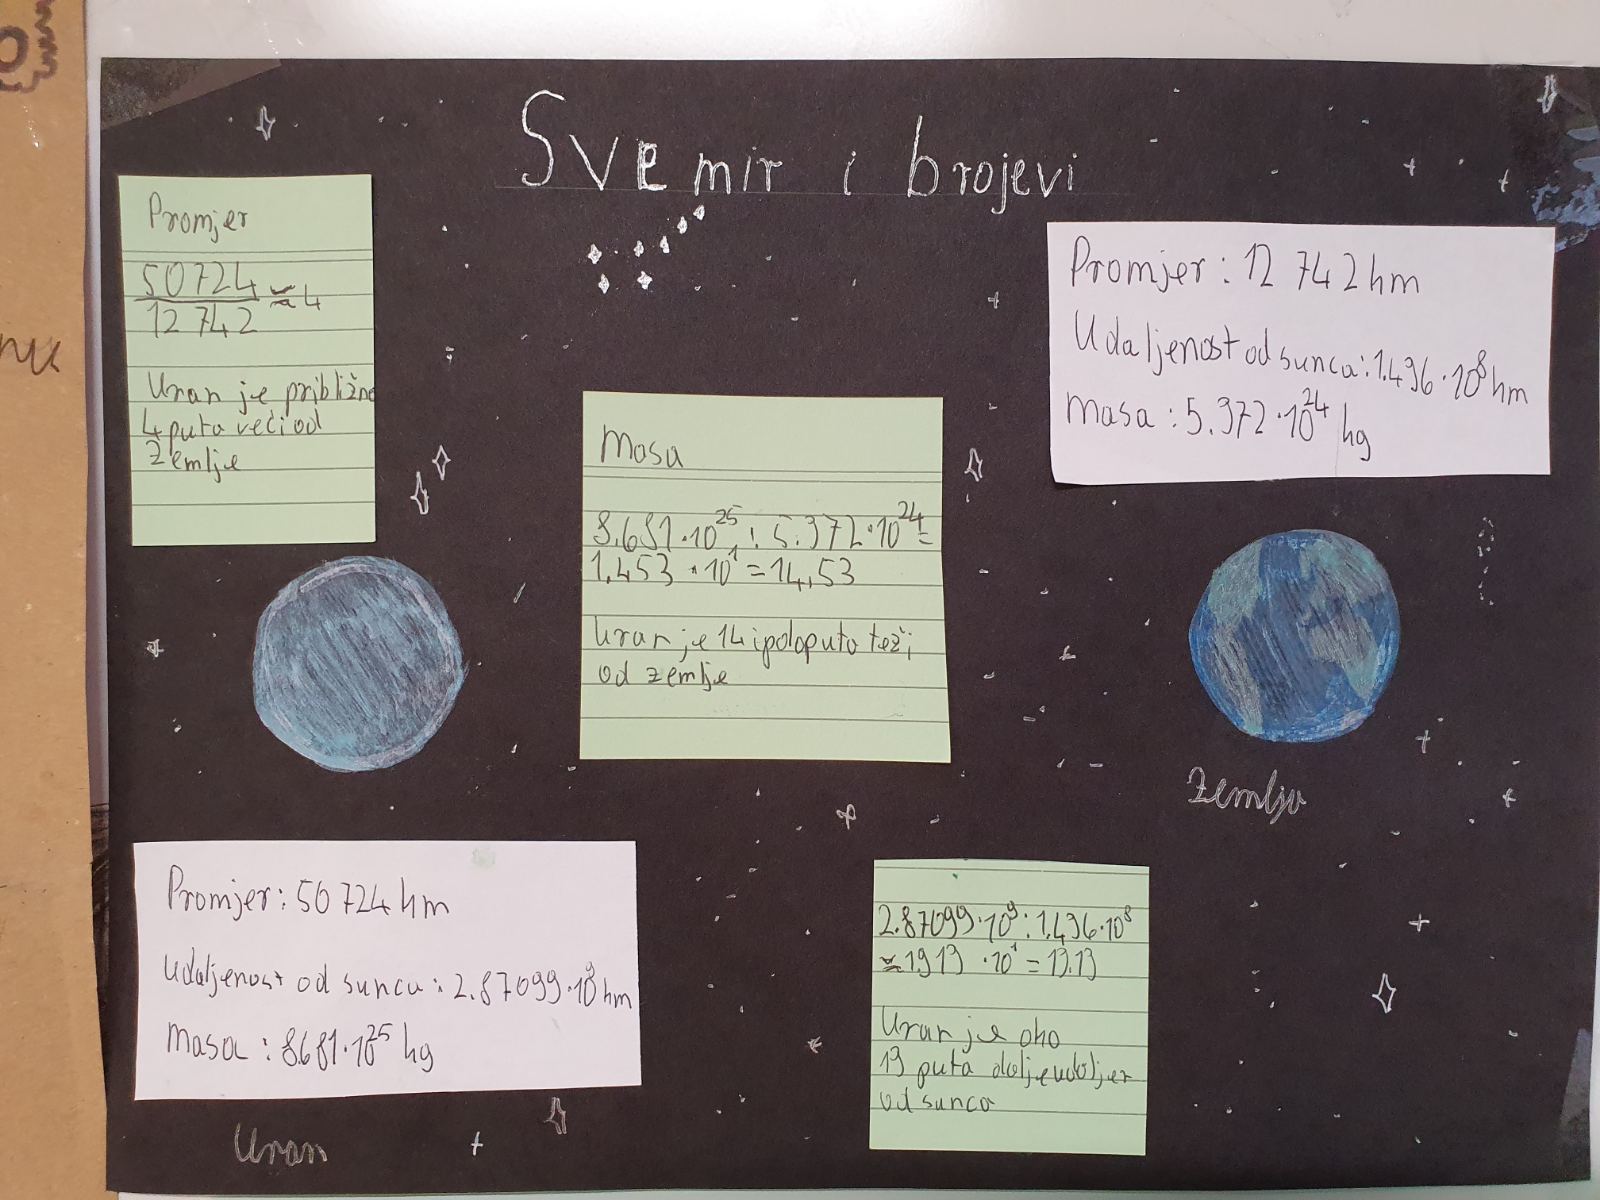 Svemir i brojevi
Promjer
50724
12 742
≈ 4
Uran je približno
4 puta veći od
Zemlje
Promjer: 12 742 km
Udaljenost od sunca: 1.496·10⁸ km
masa: 5.972·10²⁴ kg
Masa
8.681·10²⁵ : 5.972·10²⁴ =
1.453 · 10¹ = 14,53
Uran je 14 i pol puta teži
od zemlje
Zemlja
Promjer: 50 724 km
Udaljenost od sunca: 2.87099·10⁹ km
masa: 8.681·10²⁵ kg
Uran
2.87099·10⁹ : 1.496·10⁸
≈ 1919 · 10¹ = 19.19
Uran je oko
19 puta dalje udaljen
od sunca